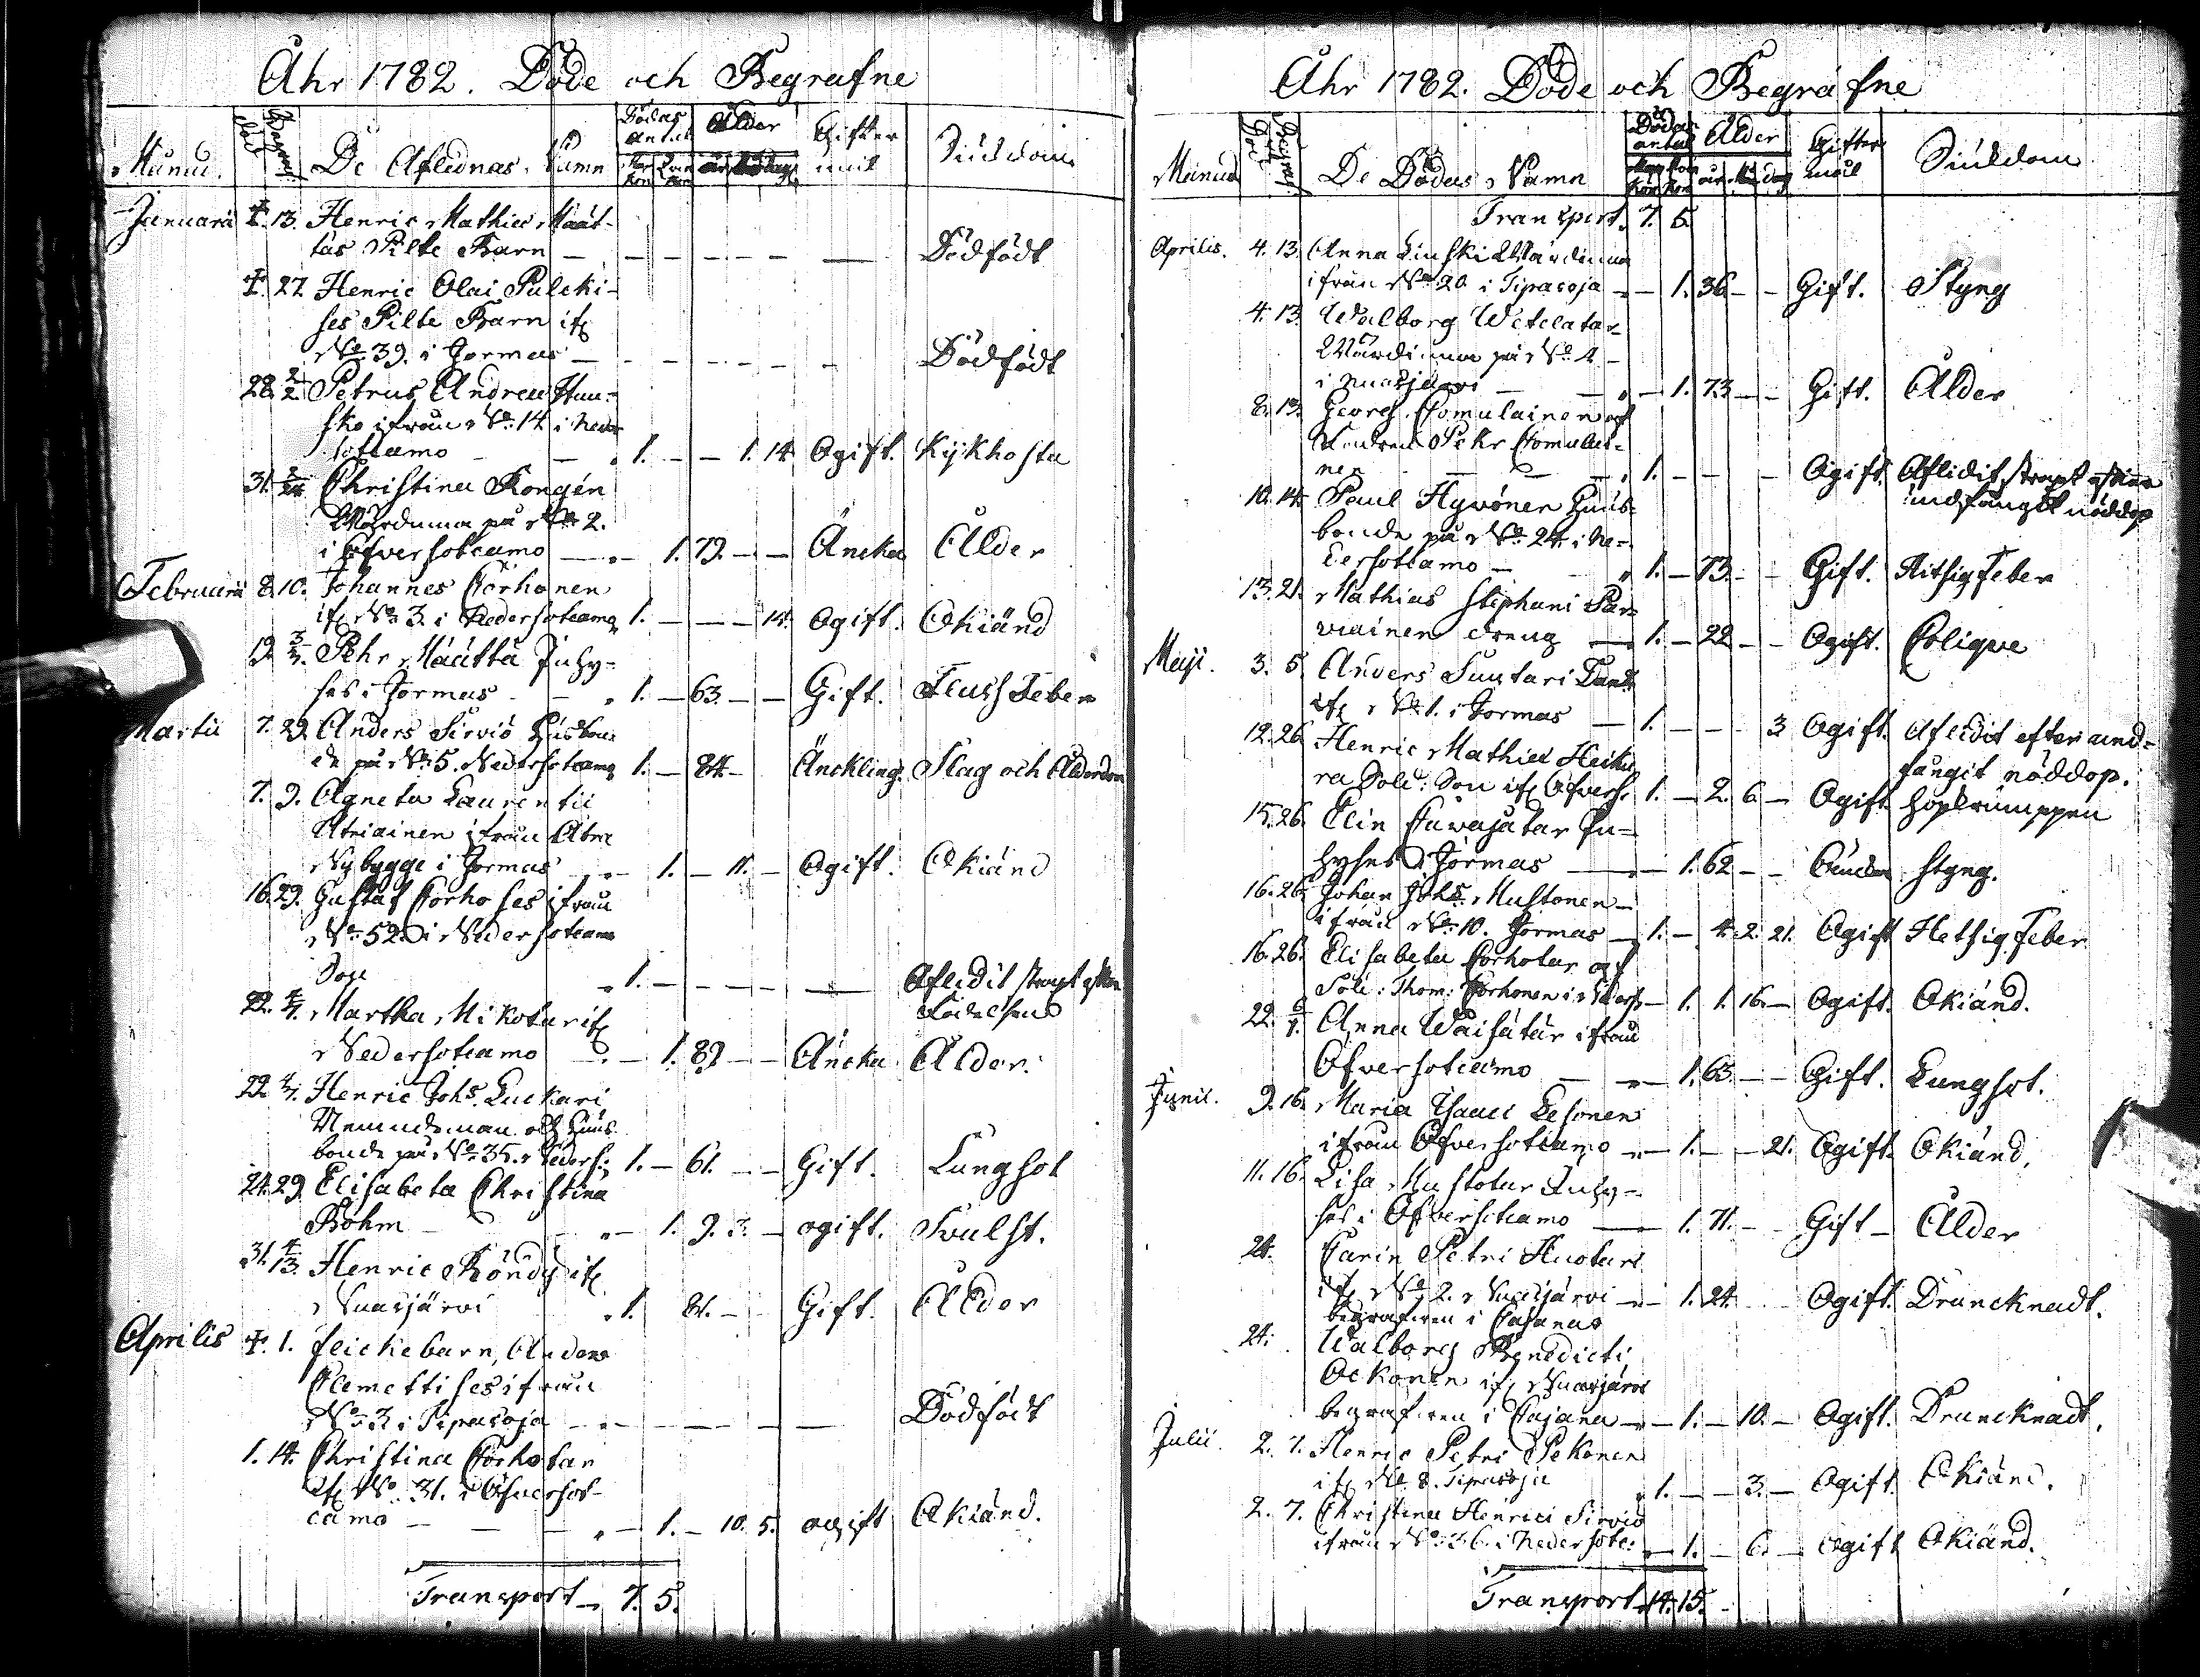 Åhr 1782. Döde och Begrafne
Månad. Död Begraf: De Aflednas Namn Dödas Antal Ålder Gifter mål Siukdom
Man kön Qvin kön år Mån dag
Januarii 4. 13. Henric Mathiæ Määt-
täs Pilte Barn — — — — — — Dödfödt
4. 27. Henric Olai Pulcki-
ses Pilte Barn if
No 39. i Jormas — — — — — — Dödfödt
28. 2/2. Petrus Andreæ Huu-
sko ifrån No 14. i Neder
sotkamo — — 1. — — 1. 14. Ogift. Kykhosta
31. Christina Rongén
Wärdinna på No 2.
i Öfversotcamo — 1. 79. — — Äncka Ålder
Februarii 8. 10. Johannes Corhonen
if No 3. i Nedersotcamo 1. — — — 14. Ogift. Okiänd
19. 3/3. Pehr Määttä Inhy-
ses i Jormas — 1. — 63. — — Gift. Fluss Feber
Martii 7. 29. Anders Sirviö Husbon
de på No 5. Nedersotcamo 1. — 84. — Änckling. Slag och Ålderdom
7. 9. Agneta Laurentii
Atriainen ifrån
Nybygge i Jormas — 1. — 11. — Ogift. Okiänd
16. 29. Gustaf Corhoses ifrån
No 52. i Nedersotcamo
Son 1. — — — — — Afledit strapt efter
födelsen
22. 4/7. Martha Mikotar if
Nedersotcamo — 1. 89. — — Äncka Ålder.
22. 4/7. Henric Johs. Luckari
Nemndeman och Hus
bonde på No 35. Nederso: 1. — 61. — — Gift. Lungsot
24. 29. Elisabeta Christina
Bohm — 1. 9. 3. — ogift. Svulst.
31. 4/13. Henric Röndy if
Nuasjärvi 1. 81. — Gift. Ålder
Aprilis 4. 1. flickebarn, Anders
Clemettises ifrån
No 3. i Tipasoja — — — — — Dödfödt
1. 14. Christina Corhotar
if No 31. i Öfversot-
camo — — — 1. — 10. 5. ogift Okiänd.
Transport — 7. 5.
Åhr 1782. Döde och Begrafne
Månad Död Begraf: De Dödas Namn Dödas antal Ålder Gifter mål Siukdom
Man kön år Mån dag
Transport. 7. 5.
Aprilis. 4. 13. Anna Wärdinna
ifrån No 20 i Tipasoja — 1. 36 — — Gift. Styng
4. 13. Walborg Wetelatar
Wärdinna på No 4
i Nuasjärvi — — 1. 73 — — Gift. Ålder
8. 13. Georg Comulainen
Pehr Comulai-
nen — — 1. — — — Ogift. Afledit strapt efter
undfångit nöddop
10. 14. Paul Hyvönen Hus-
bonde på No 24. i Ne-
dersotcamo — 1. — 73. — — Gift. Hitsig Feber
13. 21. Mathias Stephani Par-
viainen dreng — 1. — 22 — — Ogift. Colique
Maji. 3. 5. Anders Suutari
if No 1. i Jormas — 1. — — — 3 Ogift. Afledit efter und-
fångit nöddop.
12. 26. Henric Mathiæ Heiku
ra Sold: Son if Öfvers: 1. — 2. 6. — Ogift hopkrumppen
15. 26. Elin Cuvajatar In-
hyses i Jormas — 1. 62 — — styng.
16. 26. Johan Johs. Mustonen
ifrån No 10. Jormas — 1. — 4. 2. 21. Ogift Hetsig Feber
16. 26. Elisabeta Corhotar af
Sold: Thom: Corhonen i — 1. 1. 16. — Ogift. Okiänd.
22. Anna Waisätär ifrån
Öfversotcamo — — 1. 63. — — Gift. Lungsot.
Junii. 9. 16. Maria Isaaci Lesonen
ifrån Öfversotcamo — 1. — — 21. Ogift. Okiänd.
11. 16. Lisa Mustotar Inhy-
ses i Öfversotcamo — 1. 71. — Gift — Ålder
24. Carin Petri Huotari
if No 2. Nuasjärvi — 1. 24. Ogift. Druncknadt.
begrafven i Cajana
24. Walborg Benedicti
Ockonen if Nuasjärvi
begrafven i Cajana — 1. — 10. — Ogift. Druncknadt.
Julii. 2. 7. Henric Petri Pekonen
if No 8. Tipasoja 1. — — 3. — Ogift. Okiänd.
2. 7. Christina Henrici Sirviö
ifrån No 36. i Nedersotc: — 1. — 6. — Ogift Okiänd.
Transport 14. 15.